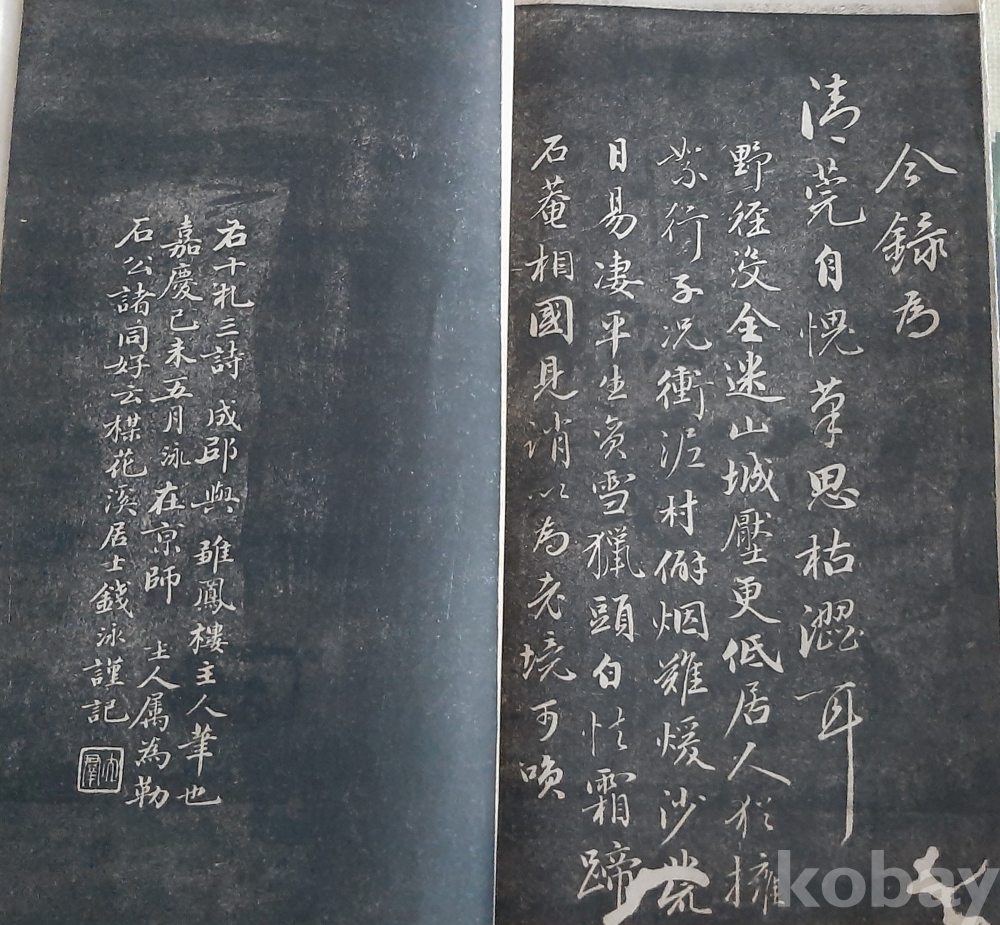 今錄為
清莞自愧筆思枯澀耳
野徑沒全迷山城壓更低居人猶擁
絮行子況衝泥村僻烟難煖沙荒
日易凄平生資雪獵頭白怯霜蹄
石菴相國見誚以為老境可嘆
右十札三詩 成邸與 雖鳳樓主人筆也
嘉慶己未五月泳在京師 主人属為勒
石公諸同好云楳花溪居士錢泳謹記
kobay